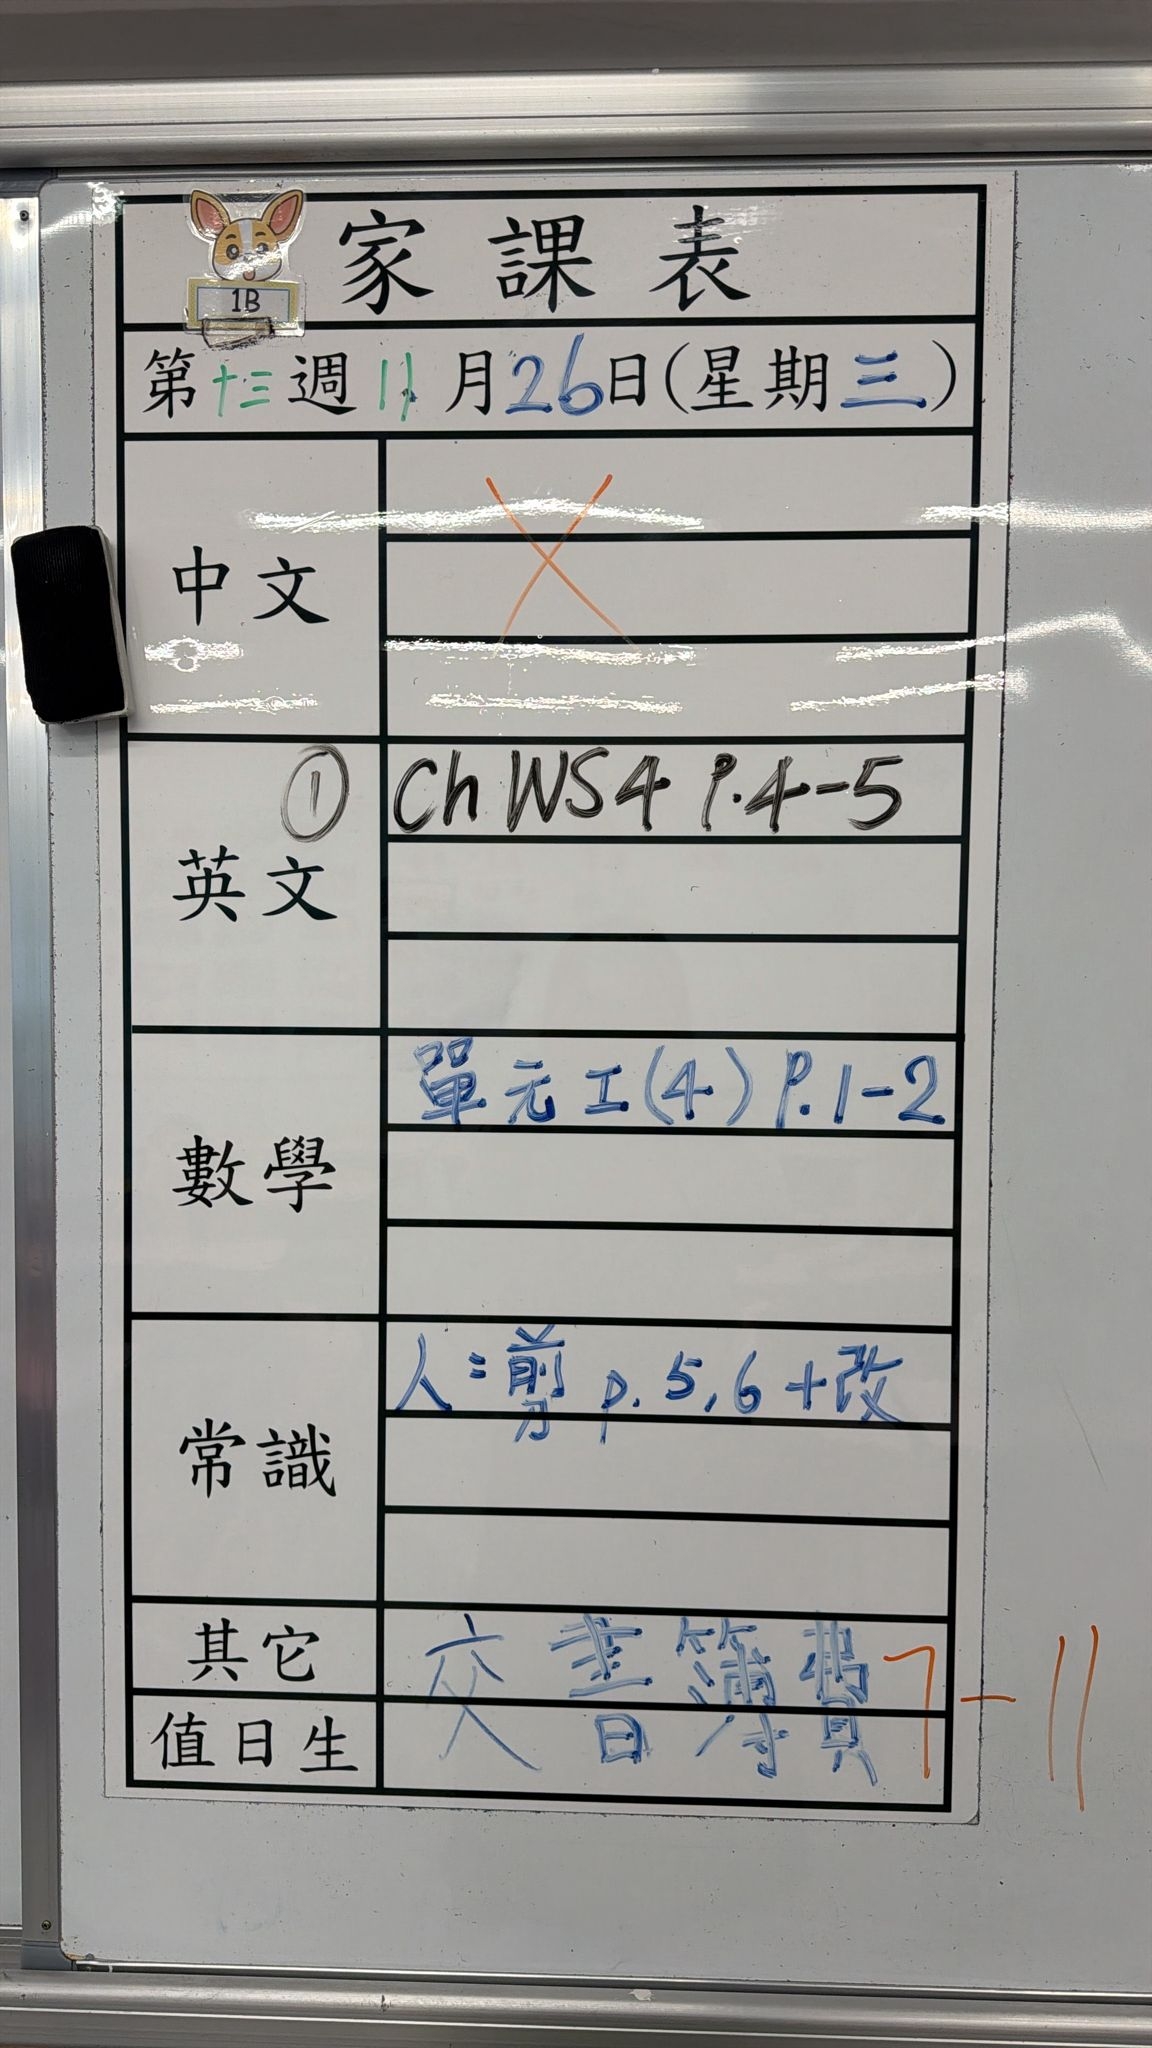 家課表
1B
第十三週 11月26日(星期三)
中文
英文
① Ch WS4 P.4-5
數學
單元工(4) P.1-2
常識
人=剪 p.5,6+改
其它
值日生
交書簿費 7-11